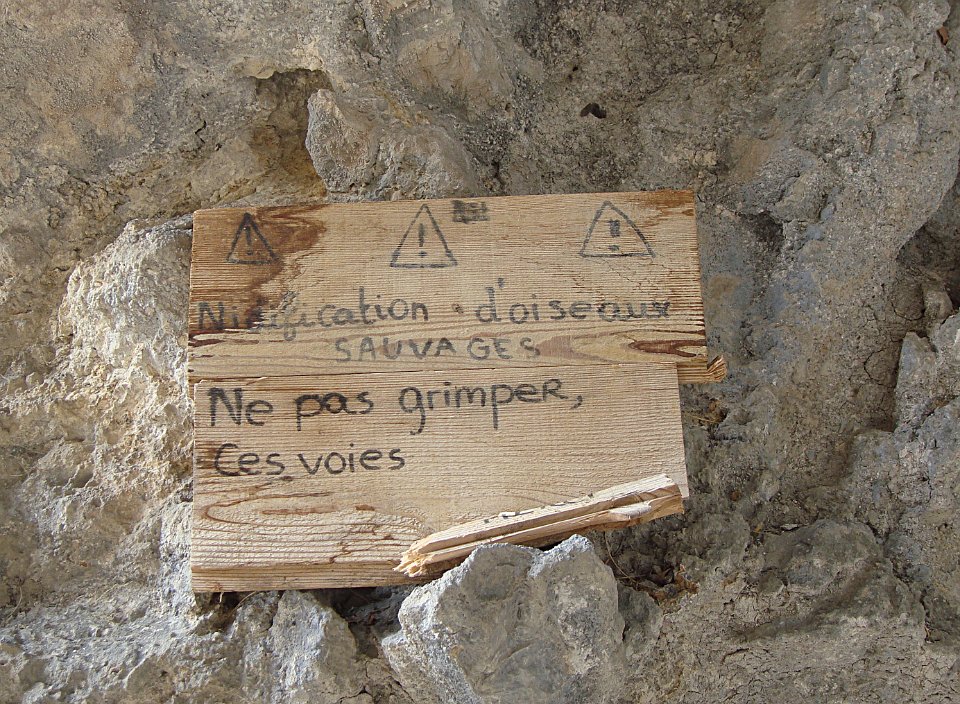 ! ! !
Nidification d'oiseaux
SAUVAGES
Ne pas grimper,
Ces voies